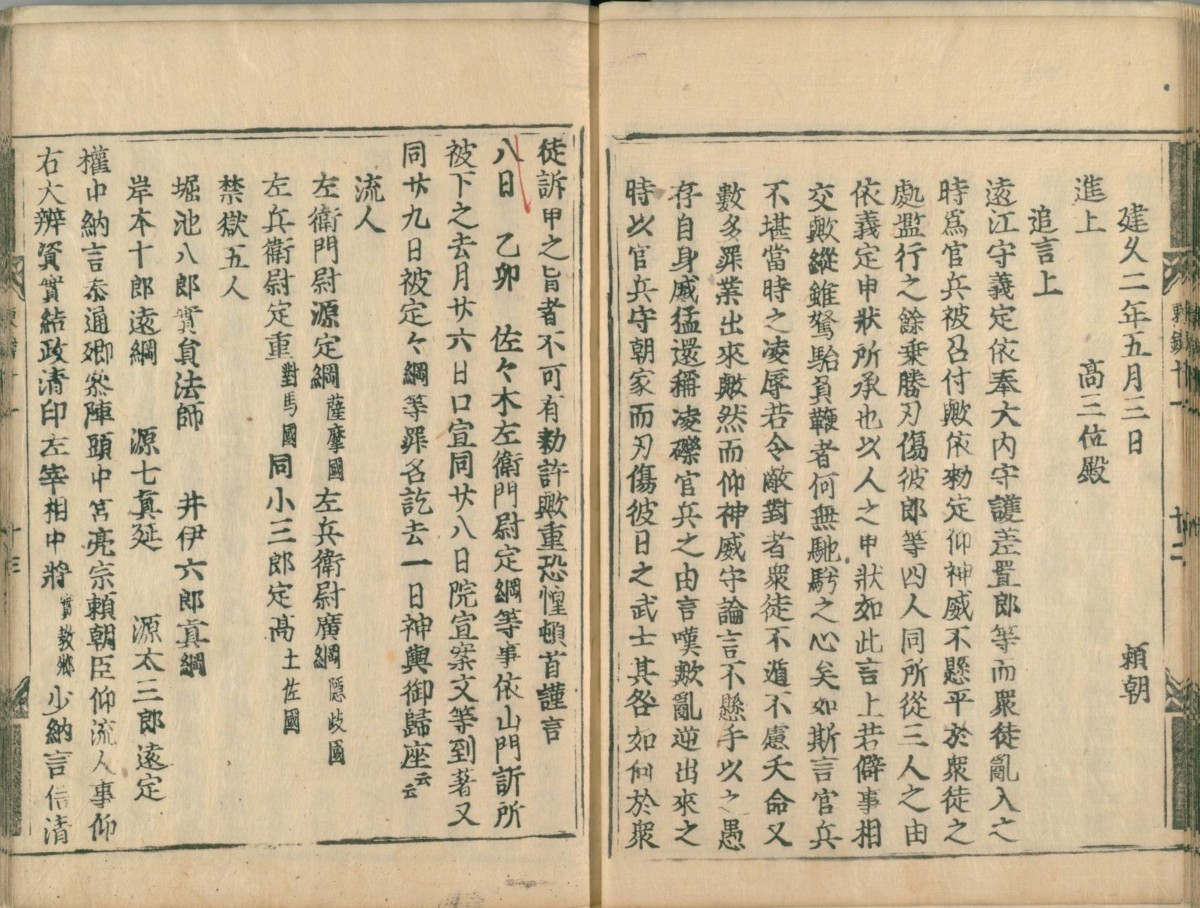 建久二年五月三日　頼朝
進上　高三位殿
追言上
遠江守義定依奉大内守護差置郎等而衆徒亂入之
時爲官兵被召付歟依勅定仰神威不懸手於衆徒之
處濫行之餘乗勝刃傷彼郎等四人同所從三人之由
依義定申狀所承也以人之申狀如此言上若僻事相
交歟縱雖駑駘負鞭者何無馳騁之心矣如斯言官兵
不堪當時之凌辱若令敵對者衆徒不遁不慮夭命又
數多罪業出來歟然而仰神威守論言不懸手以之愚
存自身威猛還稱凌礫官兵之由言嘆歟亂逆出來之
時以官兵守朝家而刃傷彼日之武士其各如何於衆
徒訴申之旨者不可有勅許歟重恐惶頓首謹言
八日　乙卯　佐々木左衛門尉定綱等事依山門訴所
被下之去月廿六日口宣同廿八日院宣案文等到著又
同廿九日被定々綱等罪名訖去一日神輿御歸座云云
流人
左衛門尉源定綱薩摩國左兵衛尉廣綱隱岐國
左兵衛尉定重對馬國同小三郎定高土佐國
禁獄五人
堀池八郎實員法師　井伊六郎真綱
岸本十郎遠綱　源七真延　源太三郎遠定
權中納言泰通卿參陣頭中宮亮宗頼朝臣仰流人事仰
右大辨資實結政清印左宰相中將實教卿少納言信清